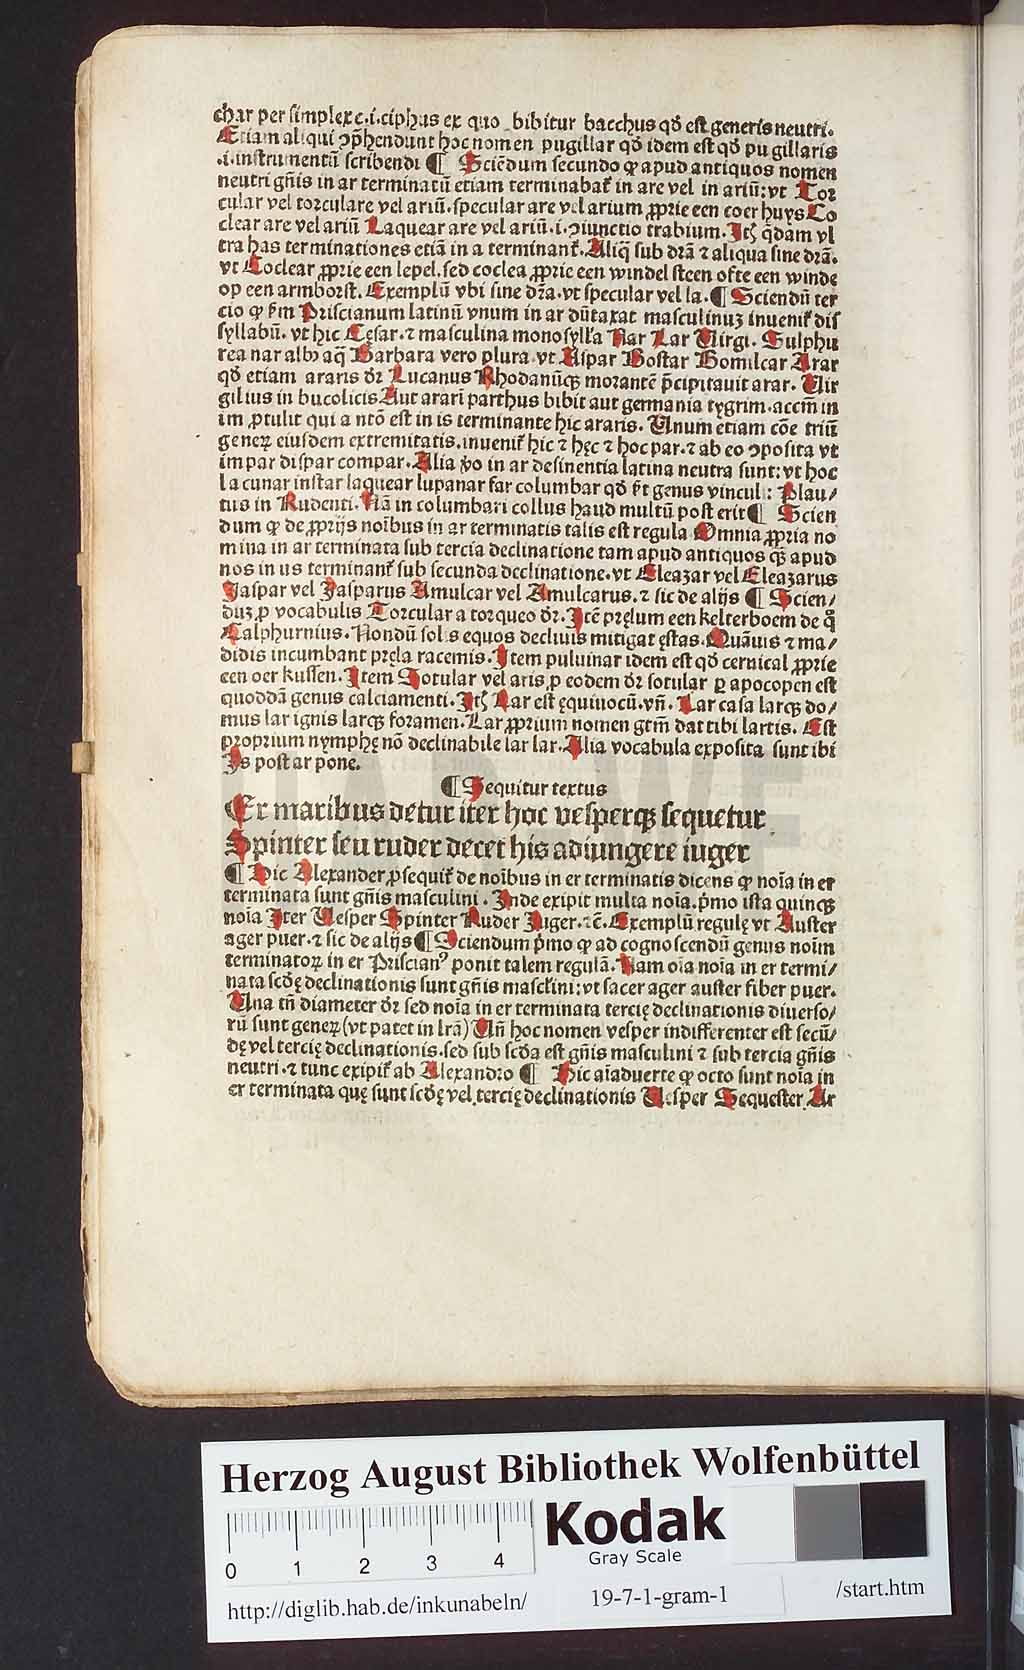 char per simplex c.i.ciphus ex quo bibitur bacchus qď est generis neutri.
Etiam aliqui ɔp̄hendunt hoc nomen pugillar qď idem est qď pugillaris
.i.instrumentū scribendi ¶ Sciēdum secundo ꝙ apud antiquos nomen
neutri gn̄is in ar terminatū etiam terminabat᷑ in are vel in ariū: vt Tor
cular vel torculare vel ariū. specular are vel arium ꝓprie een coer huys Co
clear are vel ariū Laquear are vel ariū.i.ɔiunctio trabium. Itē q̄dam vl
tra has terminationes etiā in a terminant᷑. Aliq̄ sub dr̄a ⁊ aliqua sine dr̄a.
vt Coclear ꝓprie een lepel. sed coclea ꝓprie een windel steen ofte een winde
op een armborst. Exemplū vbi sine dr̄a. vt specular vel la. ¶ Sciendū ter
cio ꝙ fm Priscianum latinū vnum in ar dūtaxat masculinuʒ inuenit᷑ dis
syllabū. vt hic Cęsar. ⁊ masculina monosyll̄a Nar Lar Virgi. Sulphu
rea nar alb̄ aq̄ Barbara vero plura vt Aspar Bostar Bomilcar Arar
qď etiam araris dr̄ Lucanus Rhodanūqꝫ morantē p̄cipitauit arar. Vir
gilius in bucolicis Aut ararī parthus bibit aut germania tygrim. accm̄ in
im ꝓtulit qui a ntō est in is terminante hic araris. Unum etiam cōe triū
generꝝ eiusdem extremitatis. inuenit᷑ hic ⁊ hęc ⁊ hoc par. ⁊ ab eo ɔposita vt
impar dispar compar. Alia v̄o in ar desinentia latina neutra sunt: vt hoc
lacunar instar laquear lupanar far columbar qď ē genus vinculi: Plau/
tus in Rudenti. Nā in columbari collus haud multū post erit ¶ Scien
dum ꝙ de ꝓprijs noībus in ar terminatis talis est regula Omnia ꝓpria no
mina in ar terminata sub tercia declinatione tam apud antiquos qꝫ apud
nos in us terminant᷑ sub secunda declinatione. vt Eleazar vel Eleazarus
Jaspar vel Jasparus Amulcar vel Amulcarus. ⁊ sic de alijs ¶ Scien/
duʒ ꝓ vocabulis Torcular a torqueo dr̄. Itē pręlum een kelterboem de q̊
Calphurnius. Nondū solis equos decliuis mitigat ęstas. Quāuis ⁊ ma/
didis incumbant pręla racemis. Item puluinar idem est qď ceruical ꝓprie
een oer kussen. Item Sotular vel aris ꝓ eodem dr̄ sotular ꝑ apocopen est
quoddā genus calciamenti. Itē Lar est ęquiuocū. vn̄. Lar casa larqꝫ do/
mus lar ignis larqꝫ foramen. Lar ꝓprium nomen gtm̄ dat tibi lartis. Est
proprium nymphę nō declinabile lar lar. Alia vocabula exposita sunt ibi
Is post ar pone.
¶ Sequitur textus
Er maribus detur iter hoc vesperqꝫ sequetur
Spinter seu ruder decet his adiungere iuger
¶ Hic Alexander ꝓsequit᷑ de noībus in er terminatis dicens ꝙ noīa in er
terminata sunt gn̄is masculini. Inde exipit multa noīa. p̄mo ista quinqꝫ
noīa Iter Vesper Spinter Ruder Juger. ⁊c̄. Exemplū regulę vt Auster
ager puer. ⁊ sic de alijs ¶ Sciendum p̄mo ꝙ ad cognoscendū genus noīm
terminatoꝝ in er Priscianꝰ ponit talem regulā. Nam oīa noīa in er termi/
nata scďę declinationis sunt gn̄is mascl̄ini: vt sacer ager auster fiber puer.
Una tn̄ diameter dr̄ sed noīa in er terminata tercię declinationis diuerso/
rū sunt generꝝ (vt patet in lr̄a) Un̄ hoc nomen vesper indifferenter est secū/
dę vel tercię declinationis. sed sub scďa est gn̄is masculini ⁊ sub tercia gn̄is
neutri. ⁊ tunc exipit᷑ ab Alexandro ¶ Hic aīaduerte ꝙ octo sunt noīa in
er terminata quę sunt scďę vel tercię declinationis Vesper Sequester Ar
Herzog August Bibliothek Wolfenbüttel
Kodak
Gray Scale
0 1 2 3 4
http://diglib.hab.de/inkunabeln/ 19-7-1-gram-1 /start.htm